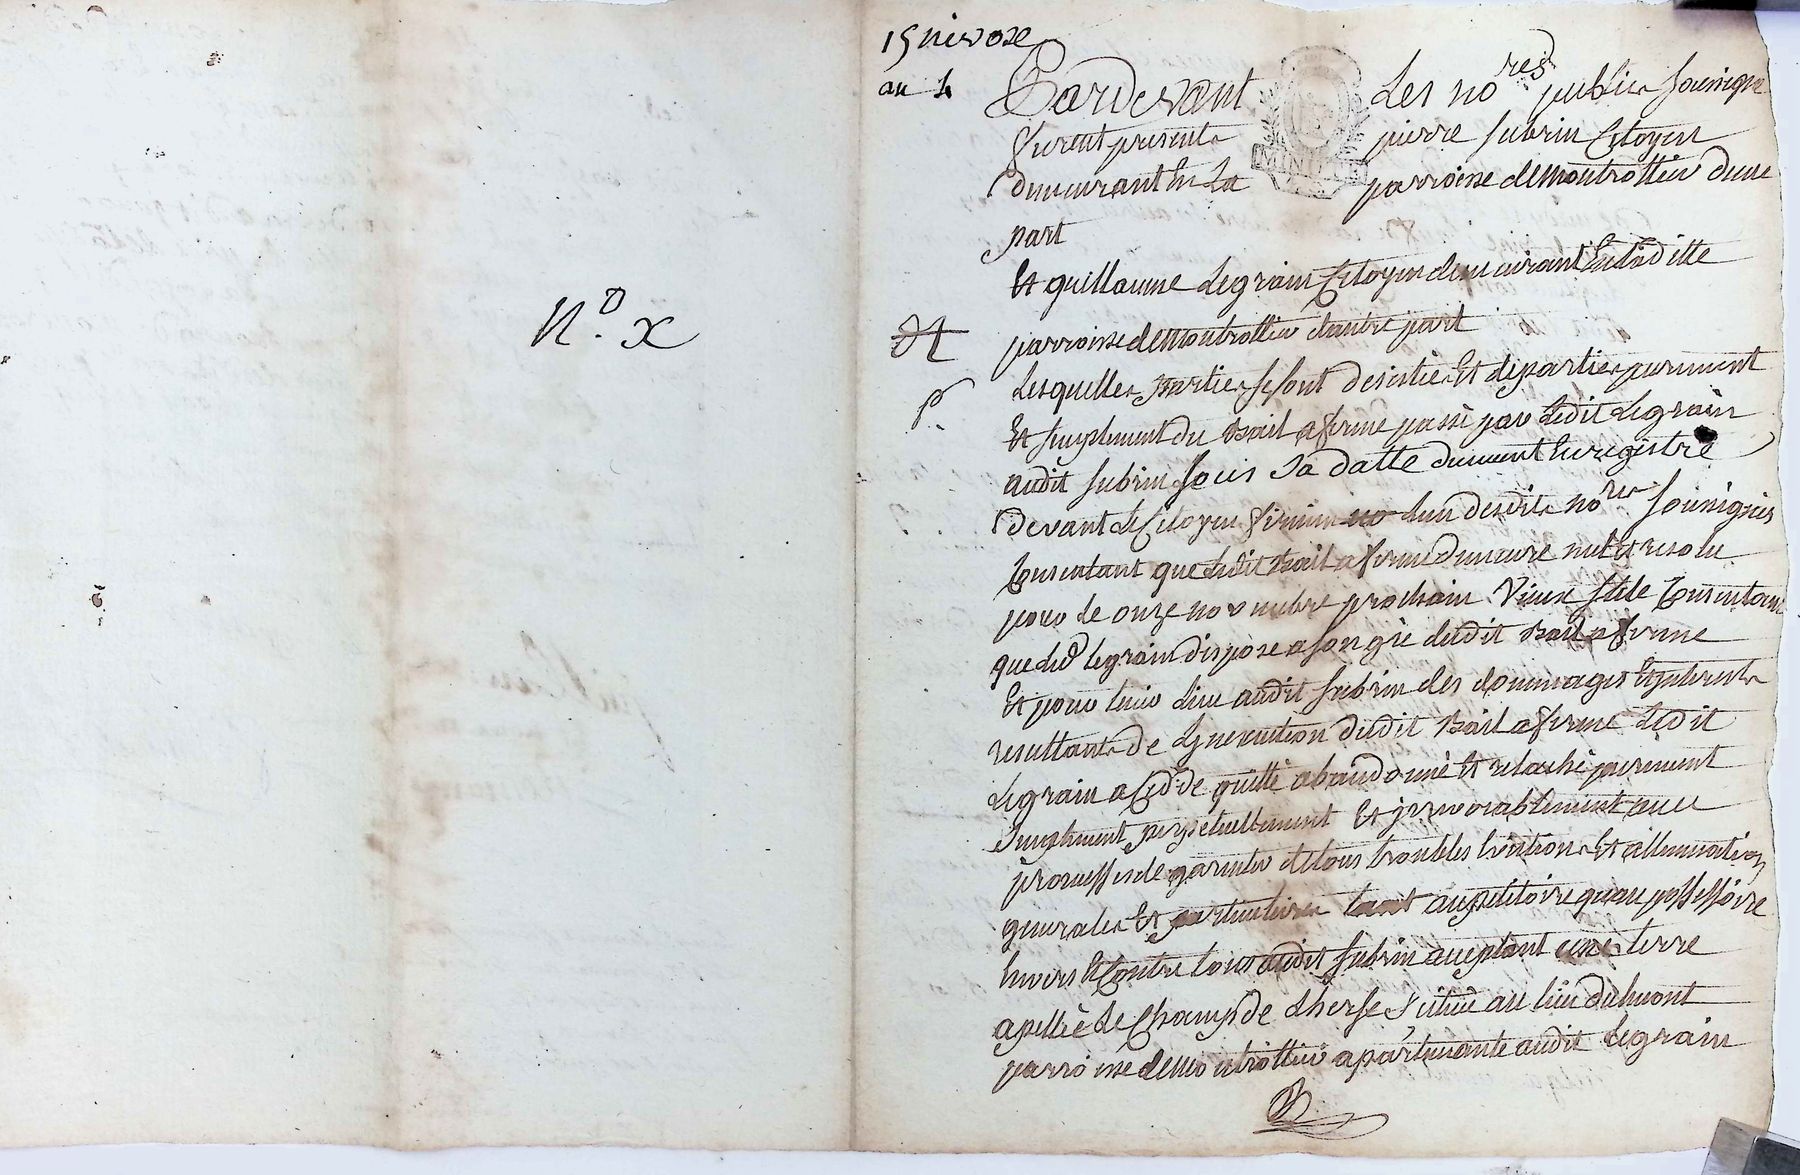 N.o x
15 nivose
an 4
Pardevant Les nores public soussigne
furent presents pierre subrin Citoyen
demeurant En La parroisse de montrottier dune
part
Et guillaume Legrain Citoyen demeurant En laditte
parroisse de montrottier dautre part
Lesquelles parties se sont desistées Et departies purement
Et simplement du Bail a ferme passé par Ledit Legrain
audit subrin sous sa datte duement Enregistré
devant Le Citoyen firmin no lun desdits nores soussignés
Consentant que ledit Bail a ferme demeure nul Et resolu
pour le onze novembre prochain Vieux stile Consentant
que led legrain dispose a son gré dudit Bail a ferme
Et pour tenir Lieu audit subrin des dommages Et interets
resultants de Linexecution dudit Bail a ferme Ledit
Legrain a Cédé quitté abandonné Et relaché purement
simplement perpetuellement Et irrevocablement avec
promesses de garentir de tous troubles Evictions Et allienation
generales Et particulieres tant au petitoire quau possessoire
Envers Et Contre tous audit subrin acceptant une terre
apellée Le Champ de Lherse située au lieu dulmont
parroisse de montrottier apartenante audit Legrain
MINUT